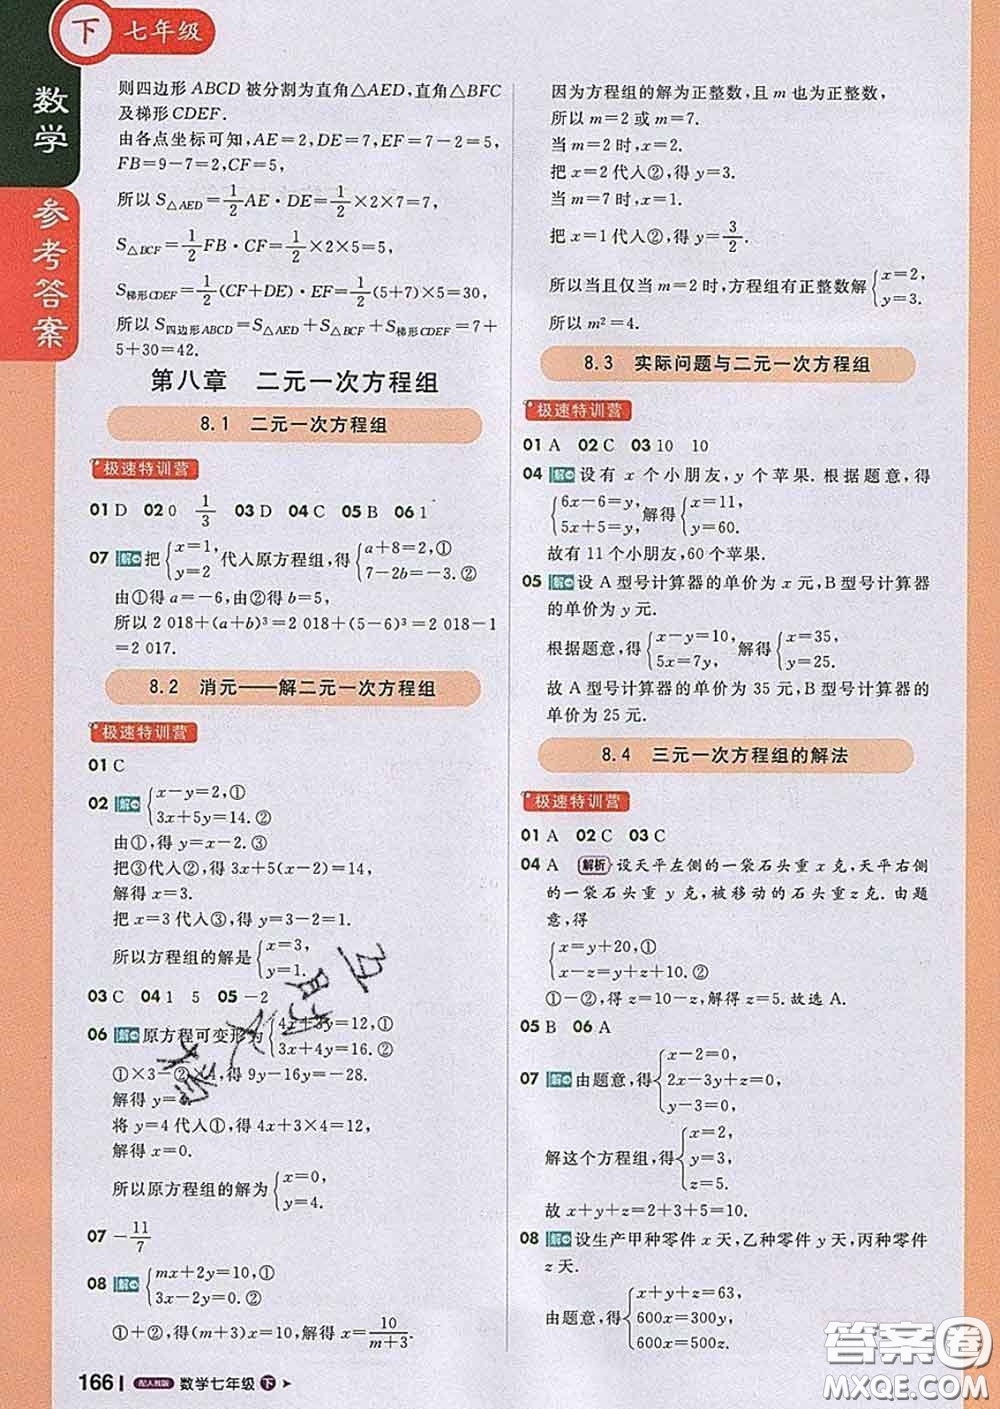 下 七年级
数学
参考答案
则四边形ABCD被分割为直角△AED,直角△BFC
及梯形CDEF.
由各点坐标可知,AE=2,DE=7,EF=7-2=5,
FB=9-7=2,CF=5,
所以S△AED=1/2AE·DE=1/2×2×7=7,
S△BCF=1/2FB·CF=1/2×2×5=5,
S梯形CDEF=1/2(CF+DE)·EF=1/2(5+7)×5=30,
所以S四边形ABCD=S△AED+S△BCF+S梯形CDEF=7+
5+30=42.
第八章 二元一次方程组
8.1 二元一次方程组
极速特训营
01 D 02 0 1/3 03 D 04 C 05 B 06 1
07 解 把{x=1, y=2 代入原方程组,得{a+8=2,① 7-2b=-3.②
由①得a=-6,由②得b=5,
所以2 018+(a+b)³=2 018+(5-6)³=2 018-1
=2 017.
8.2 消元——解二元一次方程组
极速特训营
01 C
02 解 {x-y=2,① 3x+5y=14.②
由①,得x=y+2.③
把③代入②,得3x+5(x-2)=14,
解得x=3.
把x=3代入③,得y=3-2=1.
所以方程组的解是{x=3, y=1.
03 C 04 1 5 05 -2
06 解 原方程可变形为{4x+3y=12,① 3x+4y=16.②
①×3-②×4,得9y-16y=-28.
解得y=4.
将y=4代入①,得4x+3×4=12,
解得x=0.
所以原方程组的解为{x=0, y=4.
07 -11/7
08 解 {mx+2y=10,① 3x-2y=0.②
①+②,得(m+3)x=10,解得x=10/(m+3).
166 配人教版 数学七年级 下
因为方程组的解为正整数,且m也为正整数,
所以m=2或m=7.
当m=2时,x=2.
把x=2代入②,得y=3.
当m=7时,x=1.
把x=1代入②,得y=3/2.
所以当且仅当m=2时,方程组有正整数解{x=2, y=3.
所以m²=4.
8.3 实际问题与二元一次方程组
极速特训营
01 A 02 C 03 10 10
04 解 设有x个小朋友,y个苹果.根据题意,得
{6x-6=y, 5x+5=y, 解得{x=11, y=60.
故有11个小朋友,60个苹果.
05 解 设A型号计算器的单价为x元,B型号计算器
的单价为y元.
根据题意,得{x-y=10, 5x=7y, 解得{x=35, y=25.
故A型号计算器的单价为35元,B型号计算器的
单价为25元.
8.4 三元一次方程组的解法
极速特训营
01 A 02 C 03 C
04 A 解析 设天平左侧的一袋石头重x克,天平右侧
的一袋石头重y克,被移动的石头重z克.由题
意,得
{x=y+20,① x-z=y+z+10.②
①-②,得z=10-z,解得z=5.故选A.
05 B 06 A
07 解 由题意,得{x-2=0, 2x-3y+z=0, y-3=0,
解这个方程组,得{x=2, y=3, z=5.
故x+y+z=2+3+5=10.
08 解 设生产甲种零件x天,乙种零件y天,丙种零件
z天.
由题意,得{x+y+z=63, 600x=300y, 600x=500z,
答案圈
MXQE.COM